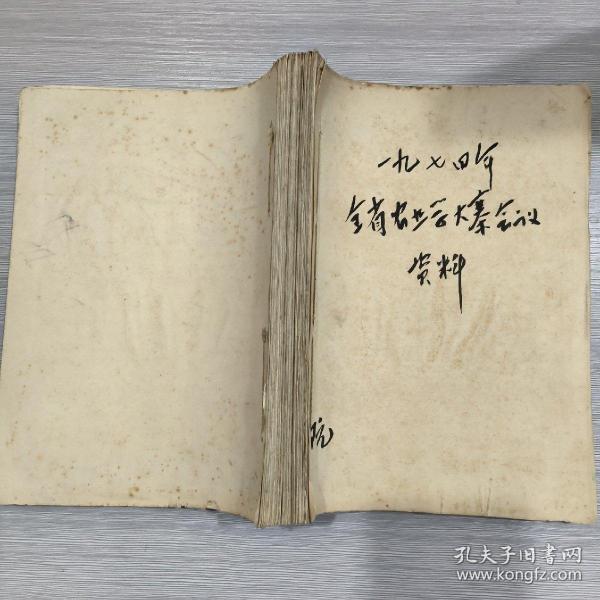 一九七四年
全省农业学大寨会议
资料
院
孔夫子旧书网
www.kongfz.com